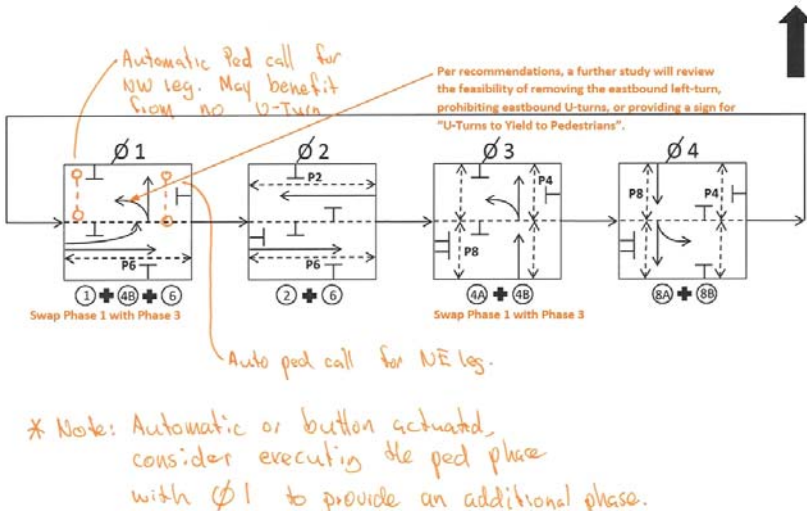 Automatic Ped call for
NW leg. May benefit
from no U-Turn
Per recommendations, a further study will review
the feasibility of removing the eastbound left-turn,
prohibiting eastbound U-turns, or providing a sign for
“U-Turns to Yield to Pedestrians”.
Ø1
Ø2
Ø3
Ø4
P2
P4
P8
P4
P6
P6
P8
1 + 4B + 6
2 + 6
4A + 4B
8A + 8B
Swap Phase 1 with Phase 3
Swap Phase 1 with Phase 3
Auto ped call for NE leg.
* Note: Automatic or button actuated,
consider executing the ped phase
with Ø1 to provide an additional phase.